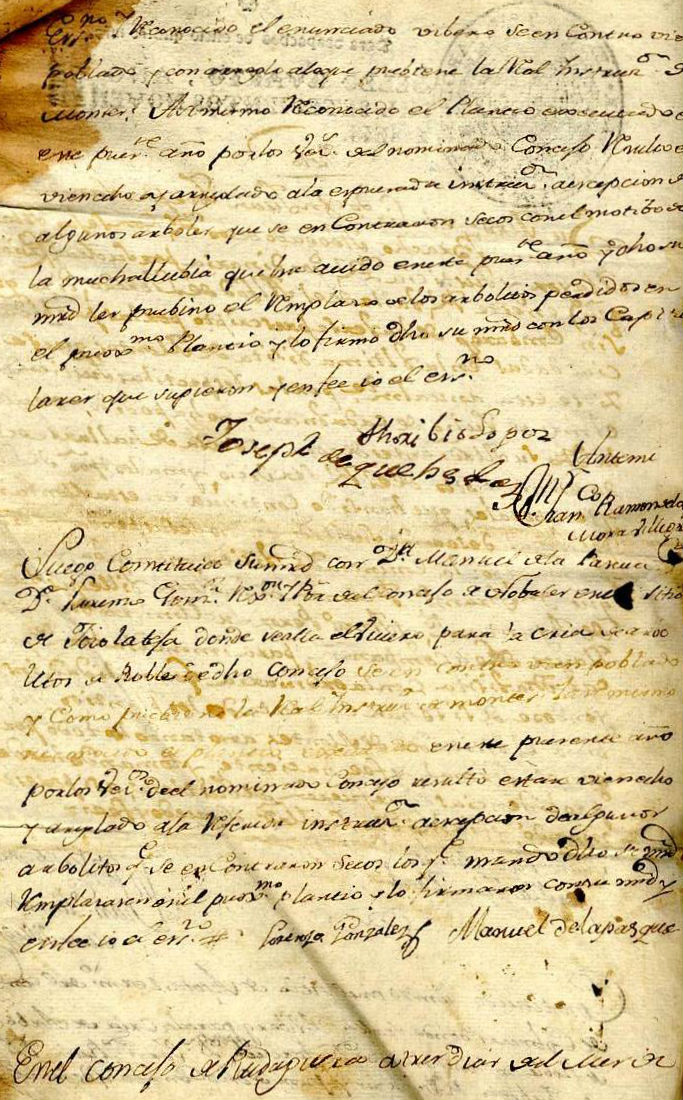 Reconocido el enunciado vibero se en Contro vien
poblado y con arreglo alo que previene la Rl Instrun de
Montes. Asimismo Reconocido el Plantio executado
este preste año por los vez.s del nominado Concejo Resulto
vien echo y arreglado ala espresada instrun aecepcion de
algunos arboles que se en Contraron secos con el motibo de
la mucha llubia que ha auido en este preste año y dho su
mrd les prebino el Remplazo de los arbolitos perdidos en
el proxmo Plantio y lo firmo dho su mrd con los Capitu
lares que supieron y en fee io el essno
Thoribio Lopez
Joseph de quebedo
Antemi
Fran Ramon de la
Mora Villegas
Luego Contituido su mrd con Dn Manuel de la
Dn Lorenzo Gonz del Concejo de en el sitio
de donde se alla el Vivero para la cria de arbo
litos de Roble de dho Concejo se en contro vien poblado
y Como previene la Real Instrun de montes Asimismo
reconocido el plantio en este presente año
por los vez.s de el nominado Concejo resulto estar vien echo
y arreglado ala Referida instrun aecepcion de algunos
arbolitos q se en Contraron secos los q mando dho su mrd
Remplazasen en el proxmo plantio y lo firmaron con su mrd y
en fee io el esno Lorenzo Gonzalez Manuel de la
En el Concejo de Rudaguera a tres dias del Mes de